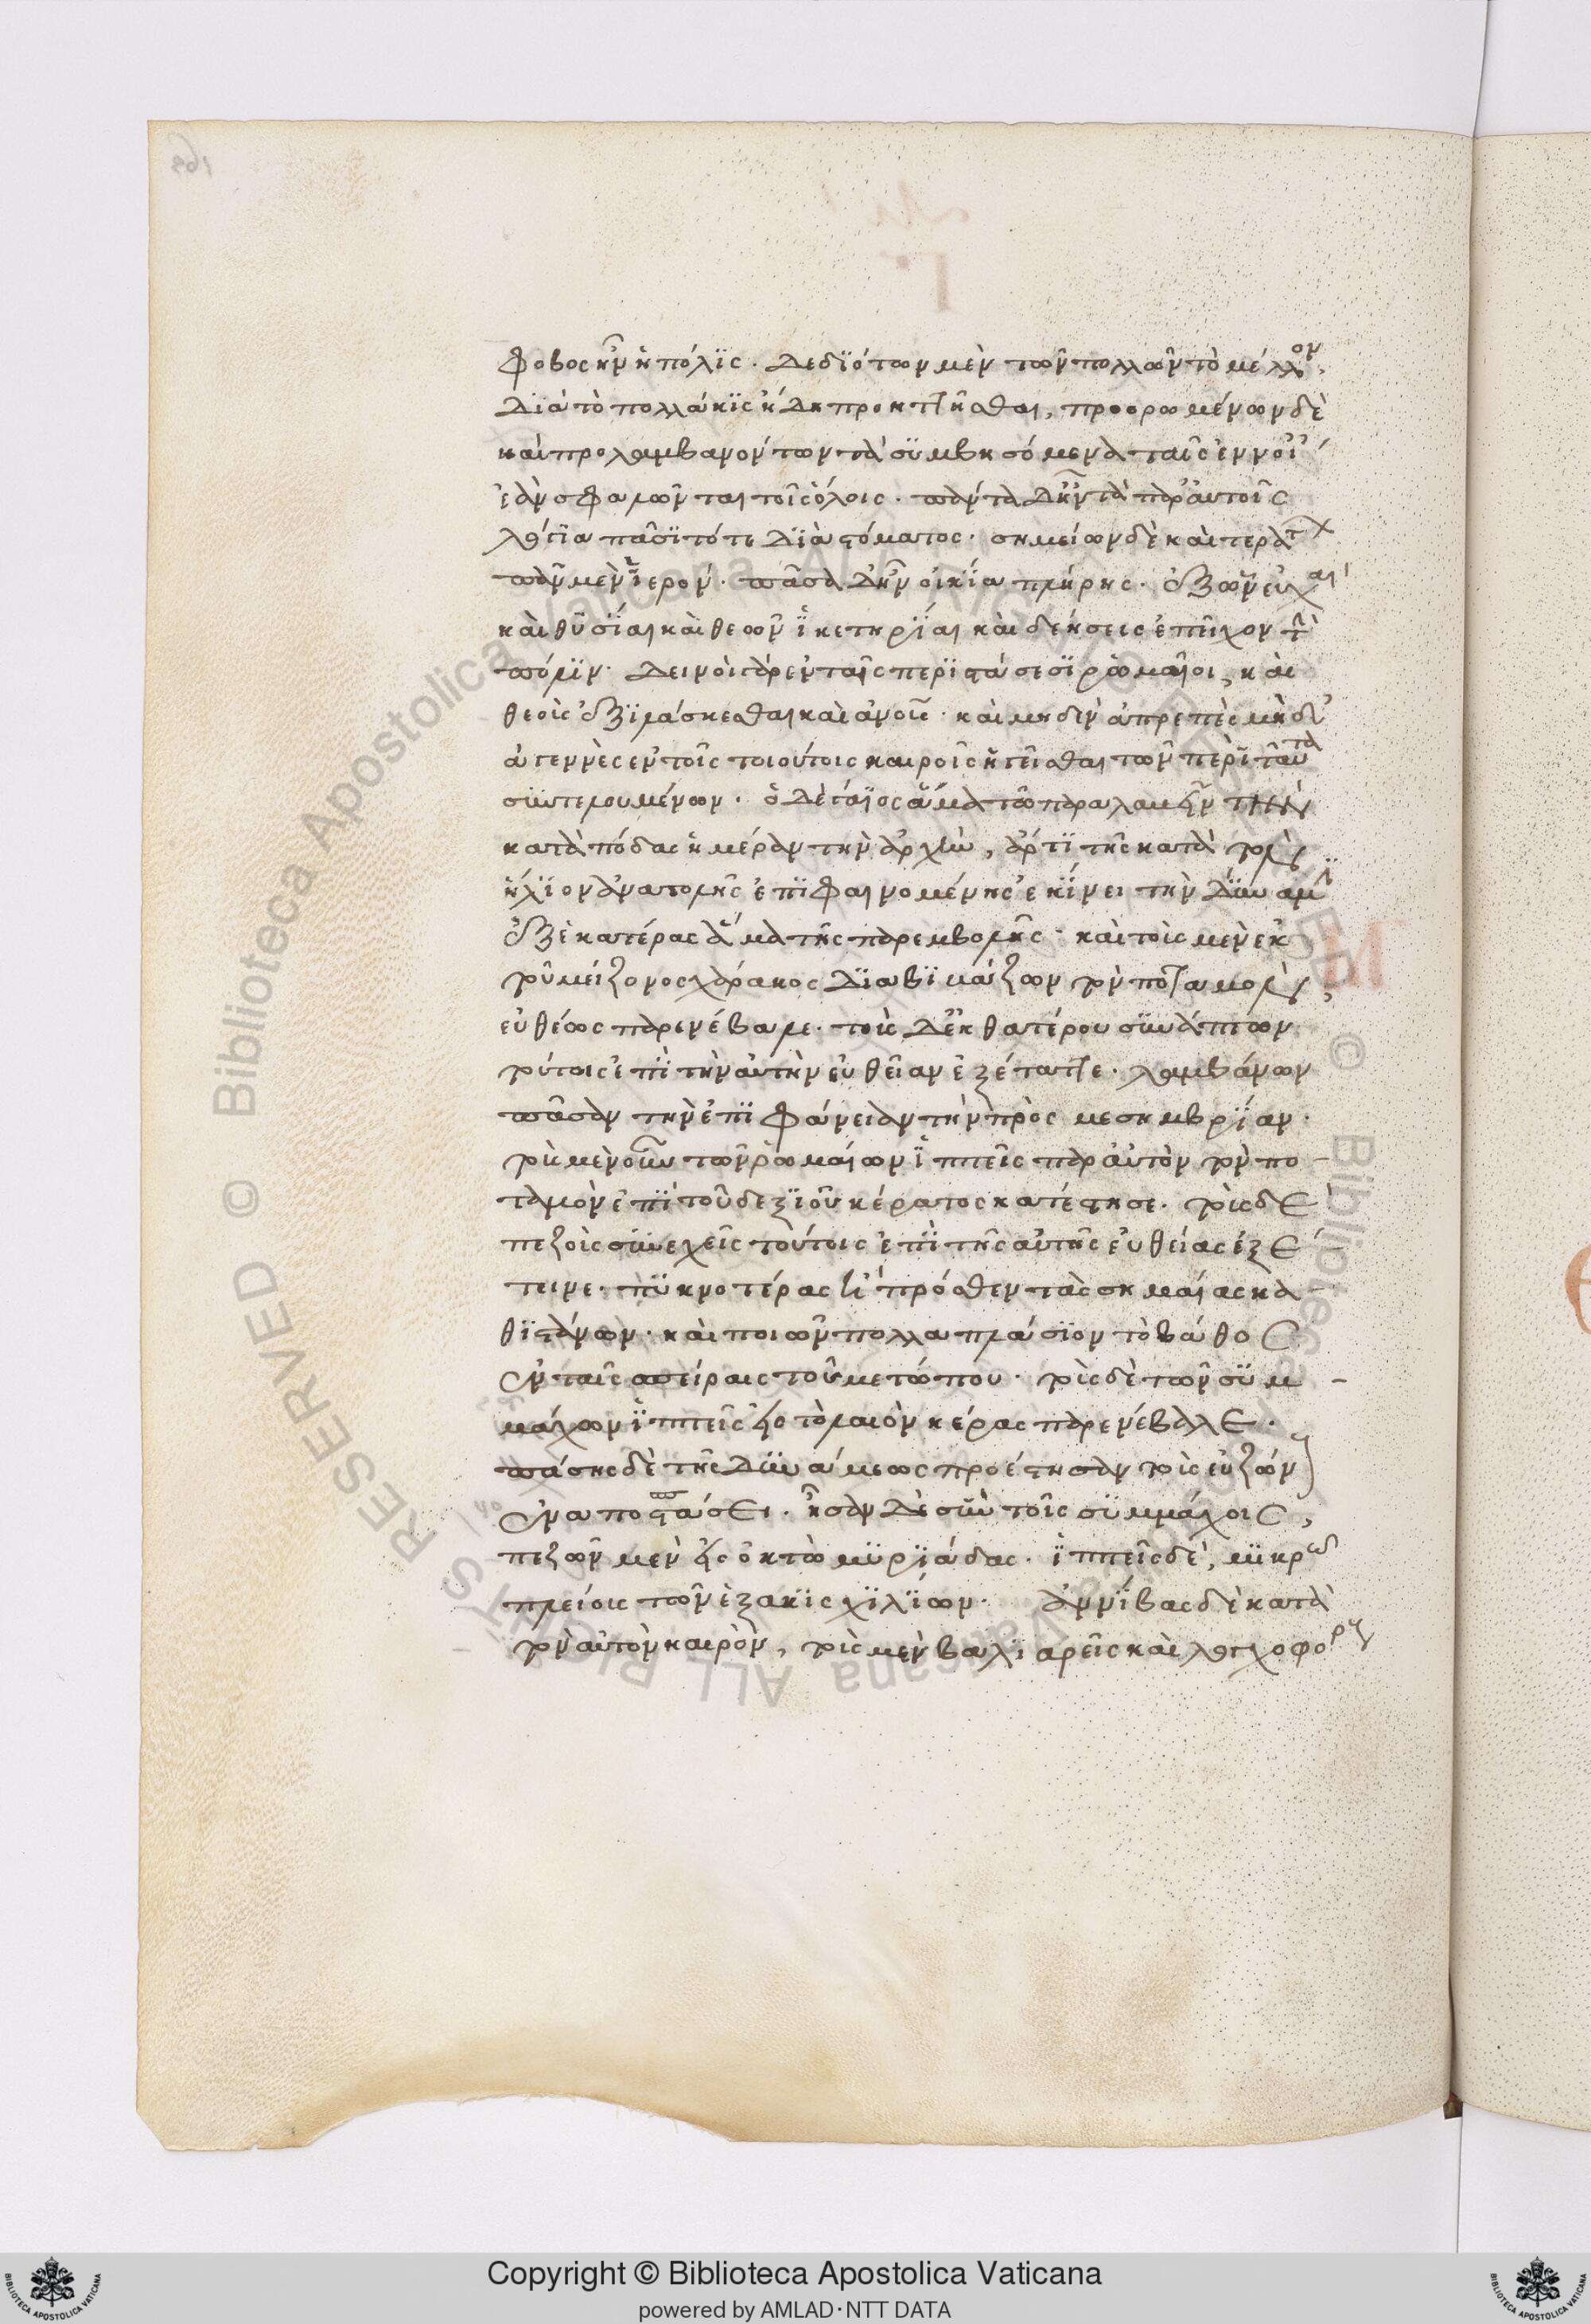 φοβος ἦν ἡ πόλϊς. δεδϊότων μὲν τῶν πολλῶν τὸ μέλλον,
διὰ τὸ πολλάκϊς ἤδη προηττῆσθαι, προορωμένων δὲ
καὶ προλαμβανόντων τὰ συμβησόμενα ταῖς ἐννοί
ἐὰν σφαλῶνται τοῖς ὅλοις. πάντα δ' ἦν τὰ παρ' αὐτοῖς
λόγια πᾶσϊ τότε διὰ στόματος. σημείων δὲ καὶ τεράτων
πᾶν μὲν ϊερόν. πᾶσα δ' ἦν οἰκΐα πλήρης. ἐξ ὧν εὐχαὶ
καὶ θυσΐαι καὶ θεῶν ϊκετηρΐαι καὶ δεήσεις ἐπεῖχον τὴν
πόλϊν. δεινοὶ γὰρ ἐν ταῖς περϊστάσεσϊ ρωμαῖοι, καὶ
θεοὺς ἐξϊλάσκεσθαι καὶ ἀνους. καὶ μηδὲν ἀπρεπὲς μηδ'
ἀγεννὲς ἐν τοῖς τοιούτοις καιροῖς ἡγεῖσθαι τῶν περὶ ταῦτα
συντελουμένων. ὁ δὲ γάϊος ἅμα τῶ παραλαβεῖν τῆ
κατὰ πόδας ἡμέραν τὴν ἀρχὴν, ἄρτϊ τῆς κατὰ τὸν
ἥλϊον ἀνατολῆς ἐπϊφαινομένης ἐκΐνει τὴν δύναμϊν
ἐξ ἑκατέρας ἅμα τῆς παρεμβολῆς. καὶ τοὺς μὲν ἐκ
τοῦ μείζονος χάρακος διαβϊβάζων τὸν ποταμὸν,
εὐθέως παρενέβαλε. τοὺς δ' ἐκ θατέρου συνάπτων
τούτοις ἐπϊ τὴν αὐτὴν εὐθεῖαν ἐξέταττε. λαμβάνων
πᾶσαν τὴν ἐπϊφάνειαν τὴν πρὸς μεσημβρΐαν.
τοὺς μὲν οὖν τῶν ρωμαίων ϊππεῖς παρ' αὐτὸν τὸν πο-
ταμὸν ἐπϊ τοῦ δεξϊοῦ κέρατος κατέστησε. τοὺς δὲ
πεζοὺς συνεχεῖς τούτοις ἐπϊ τῆς αὐτῆς εὐθείας ἐξέ-
τεινε. πυκνοτέρας ἢ πρόσθεν τὰς σημαίας κα-
θϊστάνων. καὶ ποιῶν πολλαπλάσϊον τὸ βάθος
ἐν ταῖς σπείραις τοῦ μετώπου. τοὺς δὲ τῶν συμ-
μάχων ϊππεῖς εἰς τὸ λαιὸν κέρας παρενέβαλε.
πάσης δὲ τῆς δυνάμεως προέστησαν τοὺς εὐζών
ἐν ἀποστάσει. ἦσαν δὲ σὺν τοῖς συμμάχοις,
πεζῶν μὲν εἰς ὀκτὼ μυρϊάδας. ϊππεῖς δὲ, μϊκρῶ
πλείους τῶν ἑξακϊσχϊλΐων. ἀννΐβας δὲ κατὰ
τὸν αὐτὸν καιρὸν, τοὺς μὲν βαλϊαρεῖς καὶ λογχοφόρους